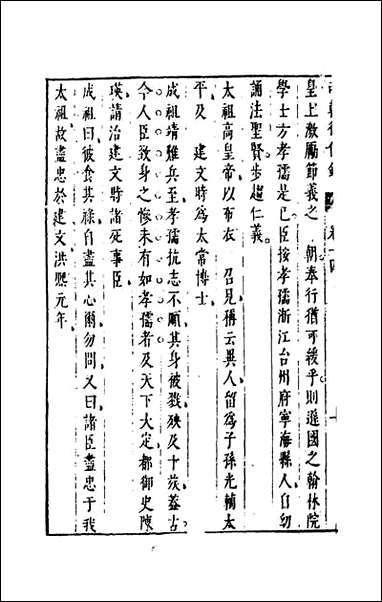 皇上激勵節義之　朝奉行猶可緩乎則遜國之翰林院
學士方孝孺是已臣按孝孺浙江台州府寧海縣人自幼
誦法聖賢步趨仁義
太祖高皇帝以布衣　召見稱云異人留爲子孫光輔太
平及　建文時爲太常博士
成祖靖難兵至孝孺抗志不順其身被戮殃及十族葢古
今人臣致身之慘未有如孝孺者及天下大定都御史陳
瑛請治建文時諸死事臣
成祖曰彼食其祿自盡其心爾勿問又曰諸臣盡忠于我
太祖故盡忠於建文洪熙元年